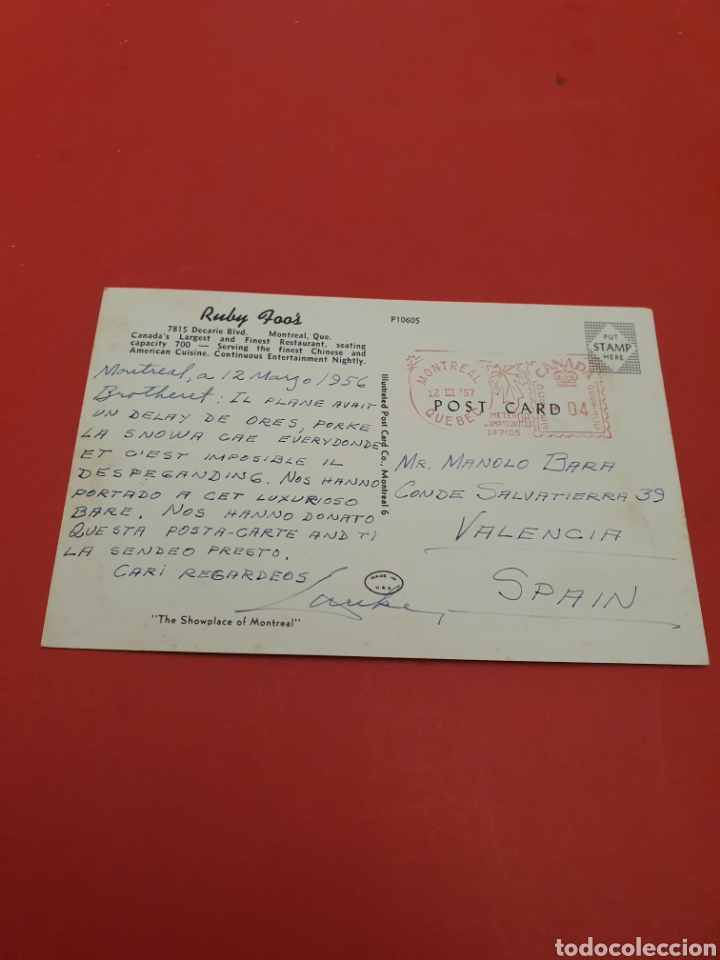 Ruby Foo's
7815 Decarie Blvd. Montreal, Que.
Canada's Largest and Finest Restaurant, seating
capacity 700 — Serving the finest Chinese and
American Cuisine. Continuous Entertainment Nightly.
Montreal, a 12 Marzo 1956
Brotheret: IL PLANE AVAIT
UN DELAY DE ORES, PORKE
LA SNOWA CAE EVERYDONDE
ET C'EST IMPOSIBLE IL
DESPEGANDING. NOS HANNO
PORTADO A CET LUXURIOSO
BARE. NOS HANNO DONATO
QUESTA POSTA-CARTE AND TI
LA SENDEO PRESTO.
CARI REGARDEOS
"The Showplace of Montreal"
MADE IN
U.S.A.
Illustrated Post Card Co., Montreal 6
P10605
PUT
STAMP
HERE
MONTREAL
12 III '57
QUEBEC
METER
COMPTEUR
147105
CANADA
POSTAGE
POSTES
04
POST CARD
MR. MANOLO BARA
CONDE SALVATIERRA 39
VALENCIA
SPAIN
todocoleccion